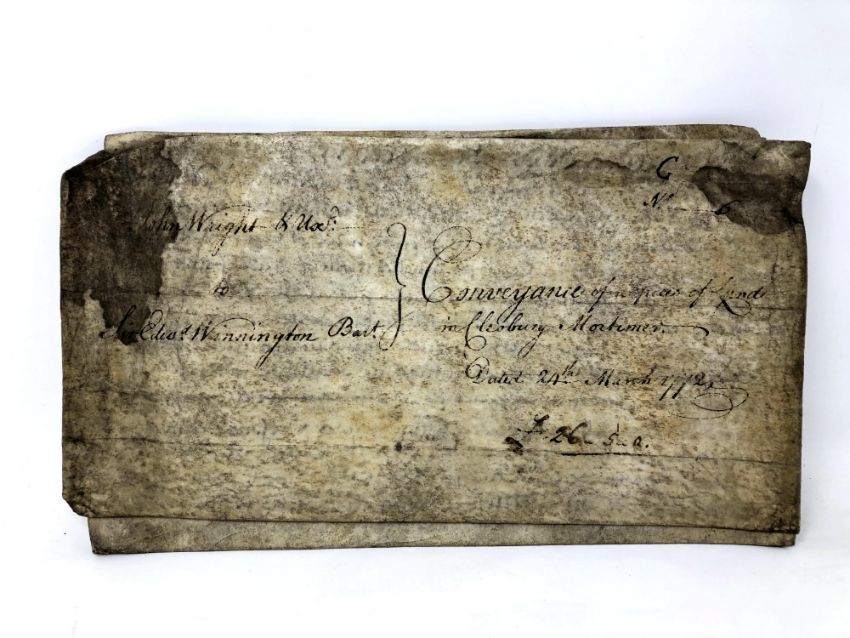 G
No. 6
John Wright & Uxr.
to
Sir Edwd. Winnington Bart.
Conveyance of a piece of Land
in Cleobury Mortimer.
Dated 24th March 1772
£ 26 - 5 - 0.